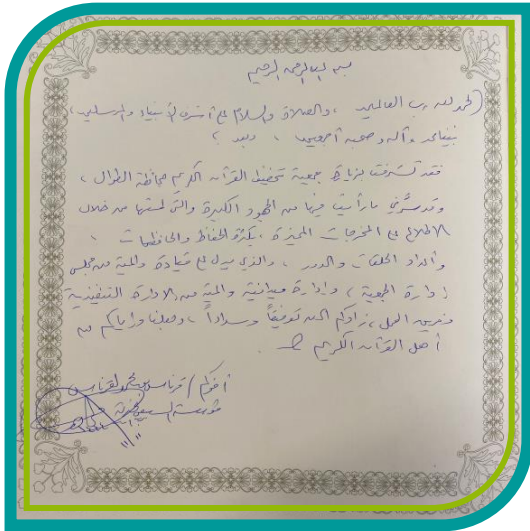 بسم الله الرحمن الرحيم
الحمد لله رب العالمين ، والصلاة والسلام على أشرف الأنبياء والمرسلين ،
نبينا محمد وآله وصحبه أجمعين ، وبعد ؛
فقد تشرفت بزيارة جمعية تحفيظ القرآن الكريم بمحافظة الطوال ،
وقد سرني ما رأيت فيها من الجهود الكبيرة والتي لمستها من خلال
الاطلاع على المخرجات المميزة ، بكثرة الحفاظ والحافظات ،
وأعداد الحلقات والدور ، والذي يدل على قيادة واعية من مجلس
إدارة الجمعية ، وإدارة ميدانية واعية من الإدارة التنفيذية
وفريق العمل ، زادكم الله توفيقاً وسداداً ، وجعلنا وإياكم من
أهل القرآن الكريم
أخوكم /
مؤسسة